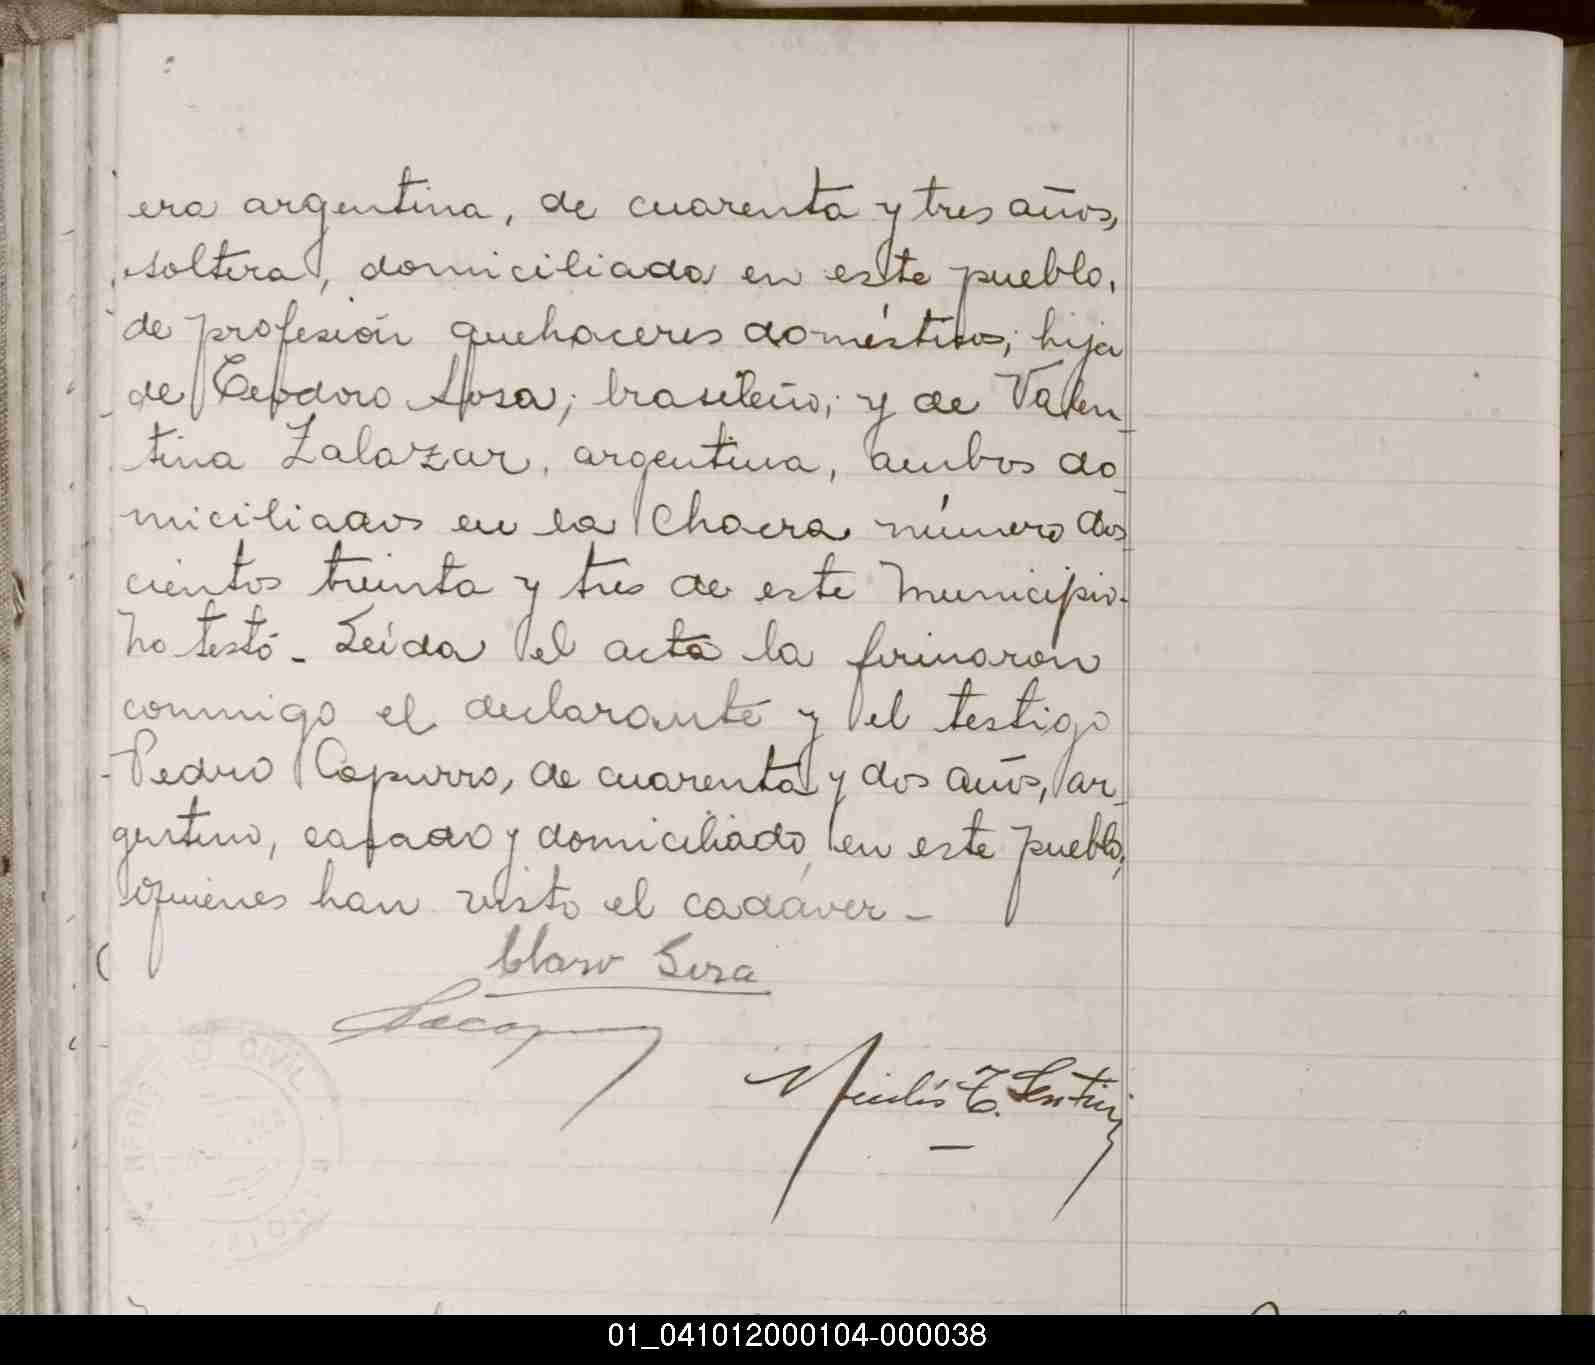 era argentina, de cuarenta y tres años,
soltera, domiciliada en este pueblo,
de profesión quehaceres domésticos; hija
de Teodoro Sosa, brasileño; y de Valen_
tina Zalazar, argentina, ambos do_
miciliados en la Chacra número dos_
cientos treinta y tres de este Municipio.
No testó - Leída el acta la firmaron
conmigo el declarante y el testigo
Pedro Capurro, de cuarenta y dos años, ar_
gentino, casado y domiciliado en este pueblo,
quienes han visto el cadáver -
Claro Sosa
CIVIL
01_041012000104-000038